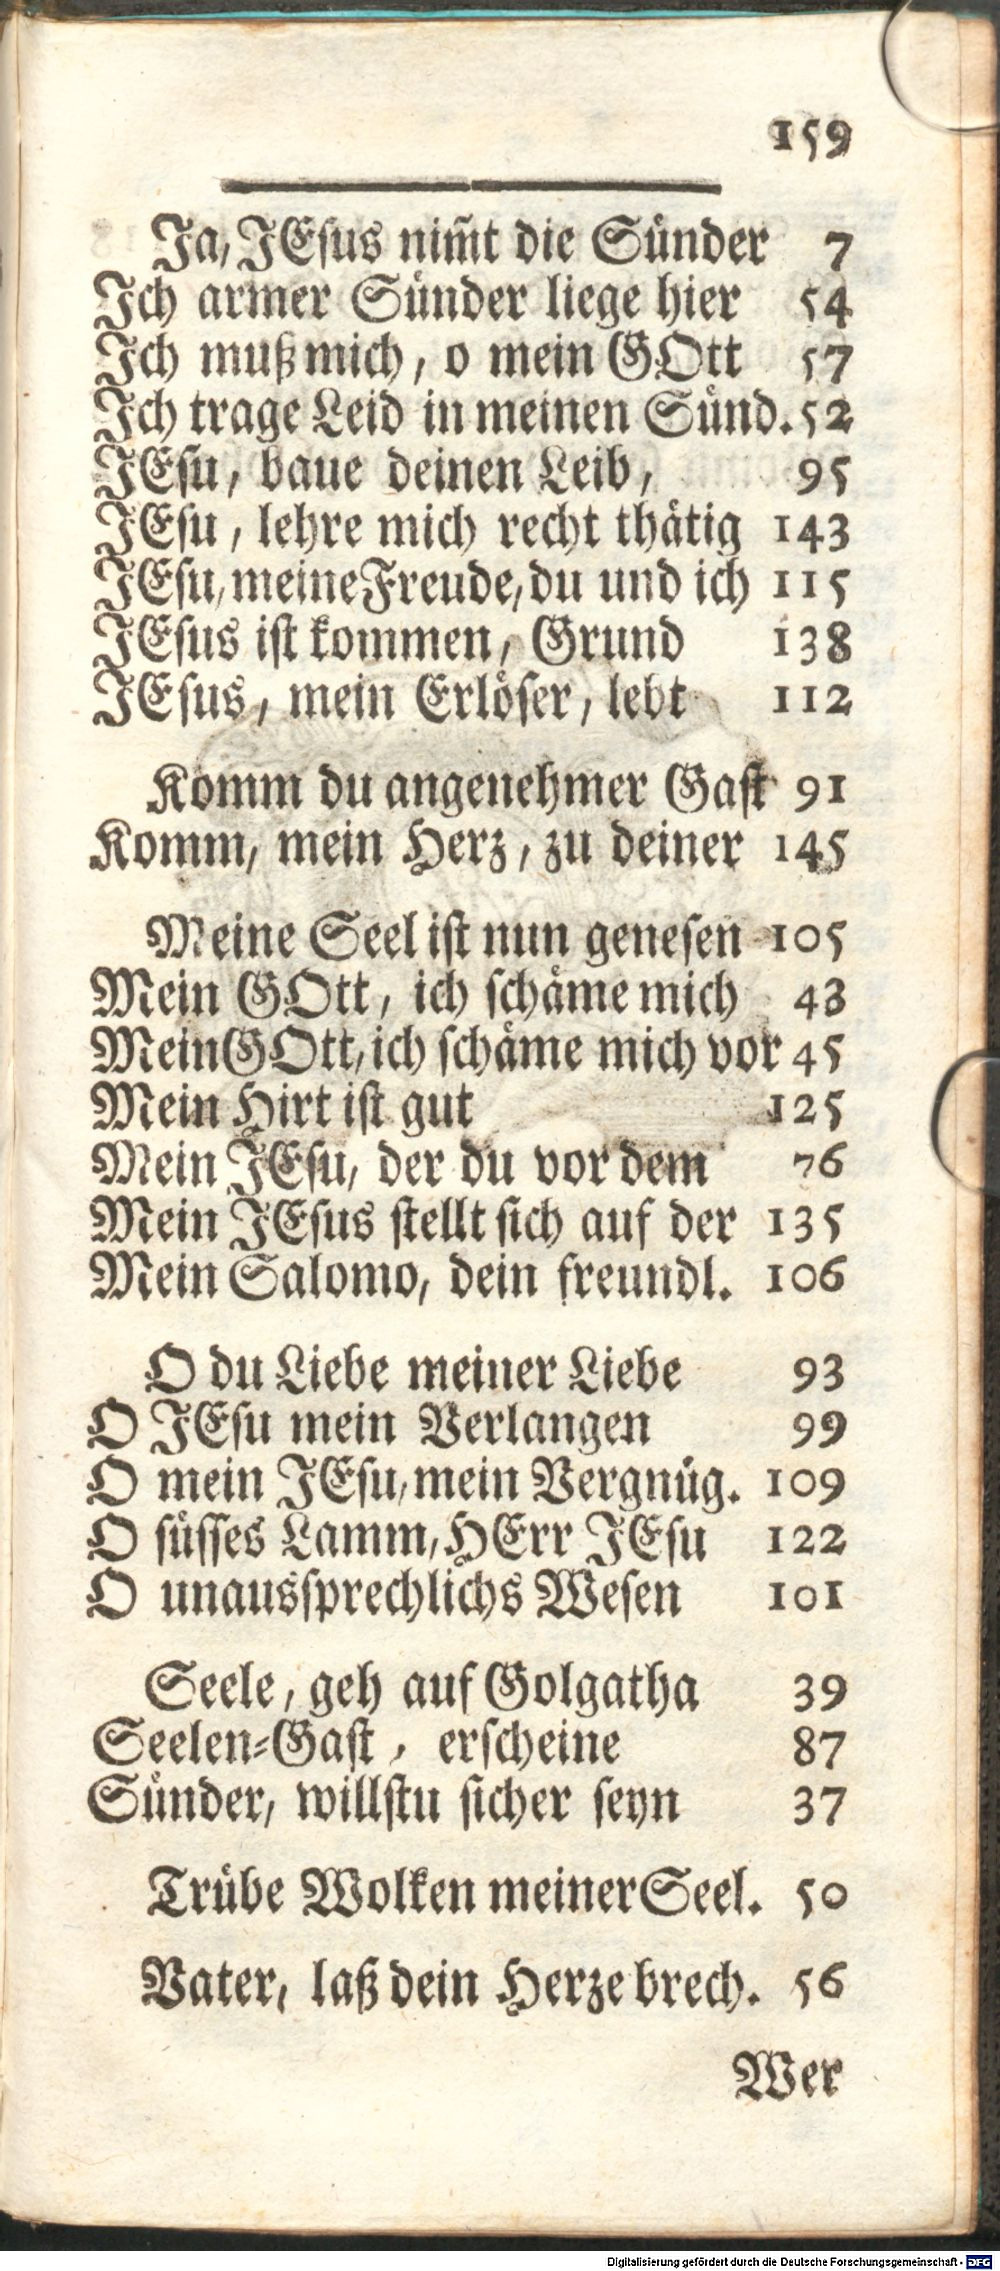 159
Ja, JEſus nim̃t die Sünder 7
Ich armer Sünder liege hier 54
Ich muß mich, o mein GOtt 57
Ich trage Leid in meinen Sünd. 52
JEſu, baue deinen Leib, 95
JEſu, lehre mich recht thätig 143
JEſu, meine Freude, du und ich 115
JEſus iſt kommen, Grund 138
JEſus, mein Erlöſer, lebt 112
Komm du angenehmer Gaſt 91
Komm, mein Herz, zu deiner 145
Meine Seel iſt nun geneſen 105
Mein GOtt, ich ſchäme mich 43
Mein GOtt, ich ſchäme mich vor 45
Mein Hirt iſt gut 125
Mein JEſu, der du vor dem 76
Mein JEſus ſtellt ſich auf der 135
Mein Salomo, dein freundl. 106
O du Liebe meiner Liebe 93
O JEſu mein Verlangen 99
O mein JEſu, mein Vergnüg. 109
O ſüſſes Lamm, HErr JEſu 122
O unausſprechlichs Weſen 101
Seele, geh auf Golgatha 39
Seelen-Gaſt, erſcheine 87
Sünder, willſtu ſicher ſeyn 37
Trübe Wolken meiner Seel. 50
Vater, laß dein Herze brech. 56
Wer
Digitalisierung gefördert durch die Deutsche Forschungsgemeinschaft - DFG